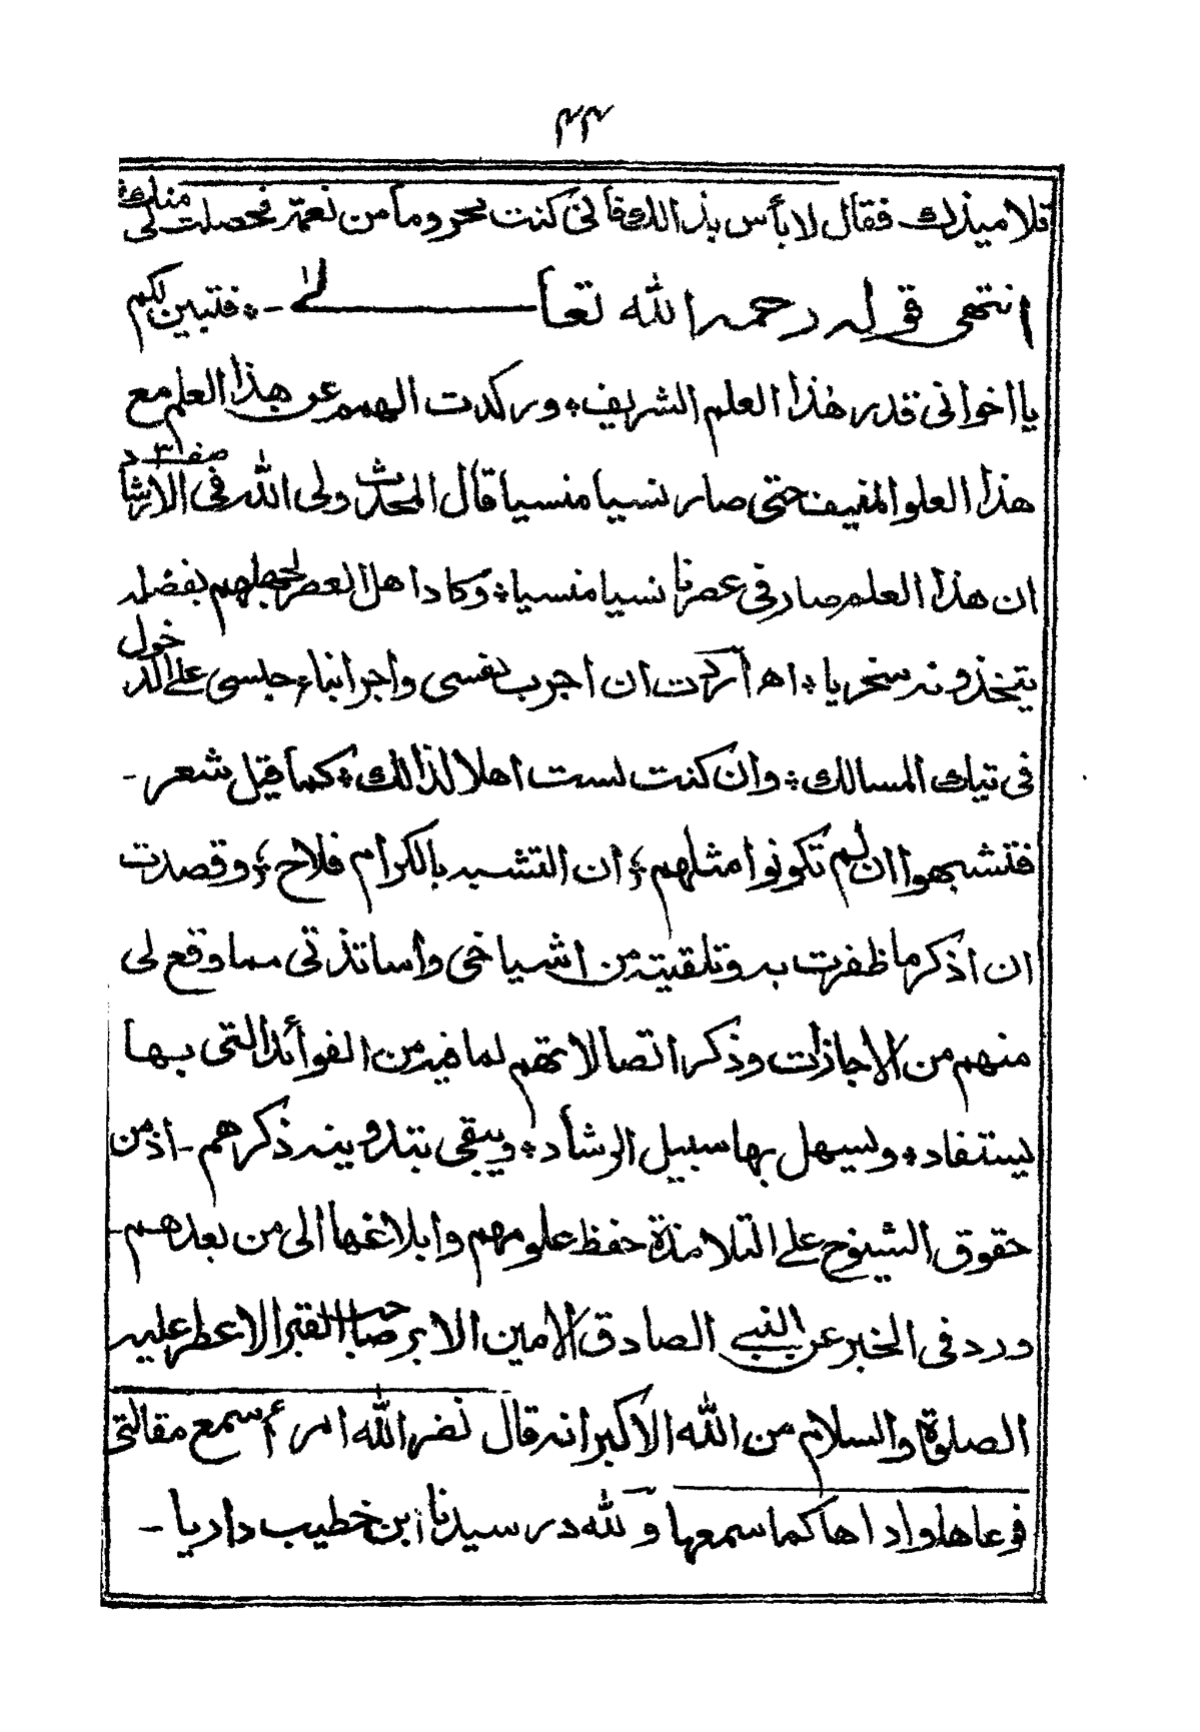 ٤٣
تلاميذك فقال لا بأس بذالك فأنى كنت محروما من نعمة فحصلت لى منك
انتهى قوله رحمه الله تعالى -٭ فتبين لكم
يا اخوانى قدر هذا العلم الشريف٭ وركدت الهمم عن هذا العلم مع
هذا العلو المنيف حتى صار نسيا منسيا قال المحدث ولى الله فى الارشاد صف٣
ان هذا العلم صار فى عصرنا نسيا منسيا٭ وكاد اهل العصر لجهلهم بفضله
يتخذونه سخريا٭ اه أردت ان اجرب نفسى واجر ابناء جلسى على الدخول
فى تيك المسالك٭ وان كنت لست اهلا لذالك٭ كما قيل شعر -
فتشبهوا ان لم تكونوا مثلهم ؛ ان التشبه بالكرام فلاح ؛ وقصدت
ان اذكر ما ظفرت به وتلقيته من اشياخى واساتذتى مما وقع لى
منهم من الاجازات وذكر اتصالاتهم لما فيه من الفوائد التى بها
يستفاد٭ ويسهل بها سبيل الرشاد٭ ويبقى بتدوينه ذكرهم - اذ من
حقوق الشيوخ على التلامذة حفظ علومهم وابلاغها الى من بعدهم -
ورد فى الخبر عن النبى الصادق الامين الابر صاحب القبر الاعطر عليه
الصلوة والسلام من الله الاكبر انه قال نضر الله امرءأ سمع مقالتى
فوعاها واداها كما سمعها ولله در سيدنا ابن خطيب داريا -